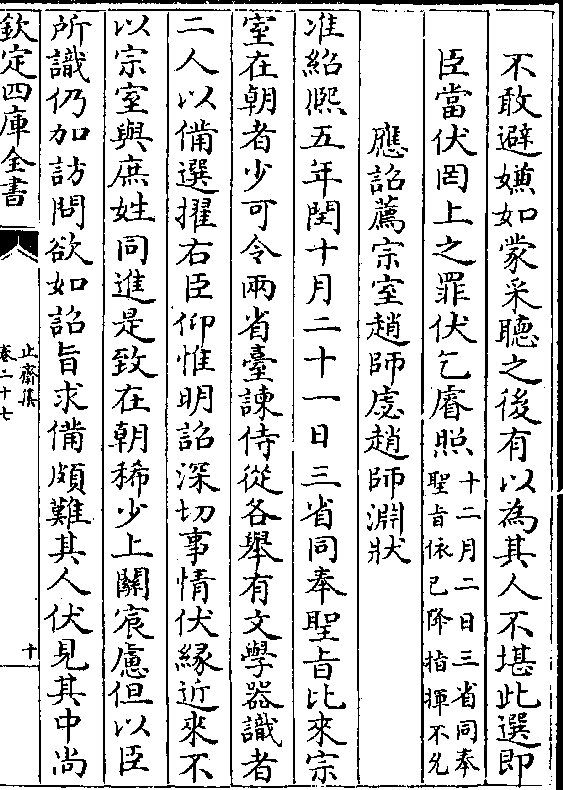 不敢避嫌如蒙采聽之後有以為其人不堪此選即
臣當伏罔上之罪伏乞睿照十二月二日三省同奉
聖旨依已降指揮不允
應詔薦宗室趙師䖍趙師淵狀
准紹熙五年閏十月二十一日三省同奉聖旨比來宗
室在朝者少可令兩省臺諫侍從各舉有文學器識者
二人以備選擢右臣仰惟明詔深切事情伏緣近來不
以宗室與庶姓同進是致在朝稀少上關宸慮但以臣
所識仍加訪問欲如詔旨求備頗難其人伏見其中尚
欽定四庫全書
止齋集
卷二十七
十